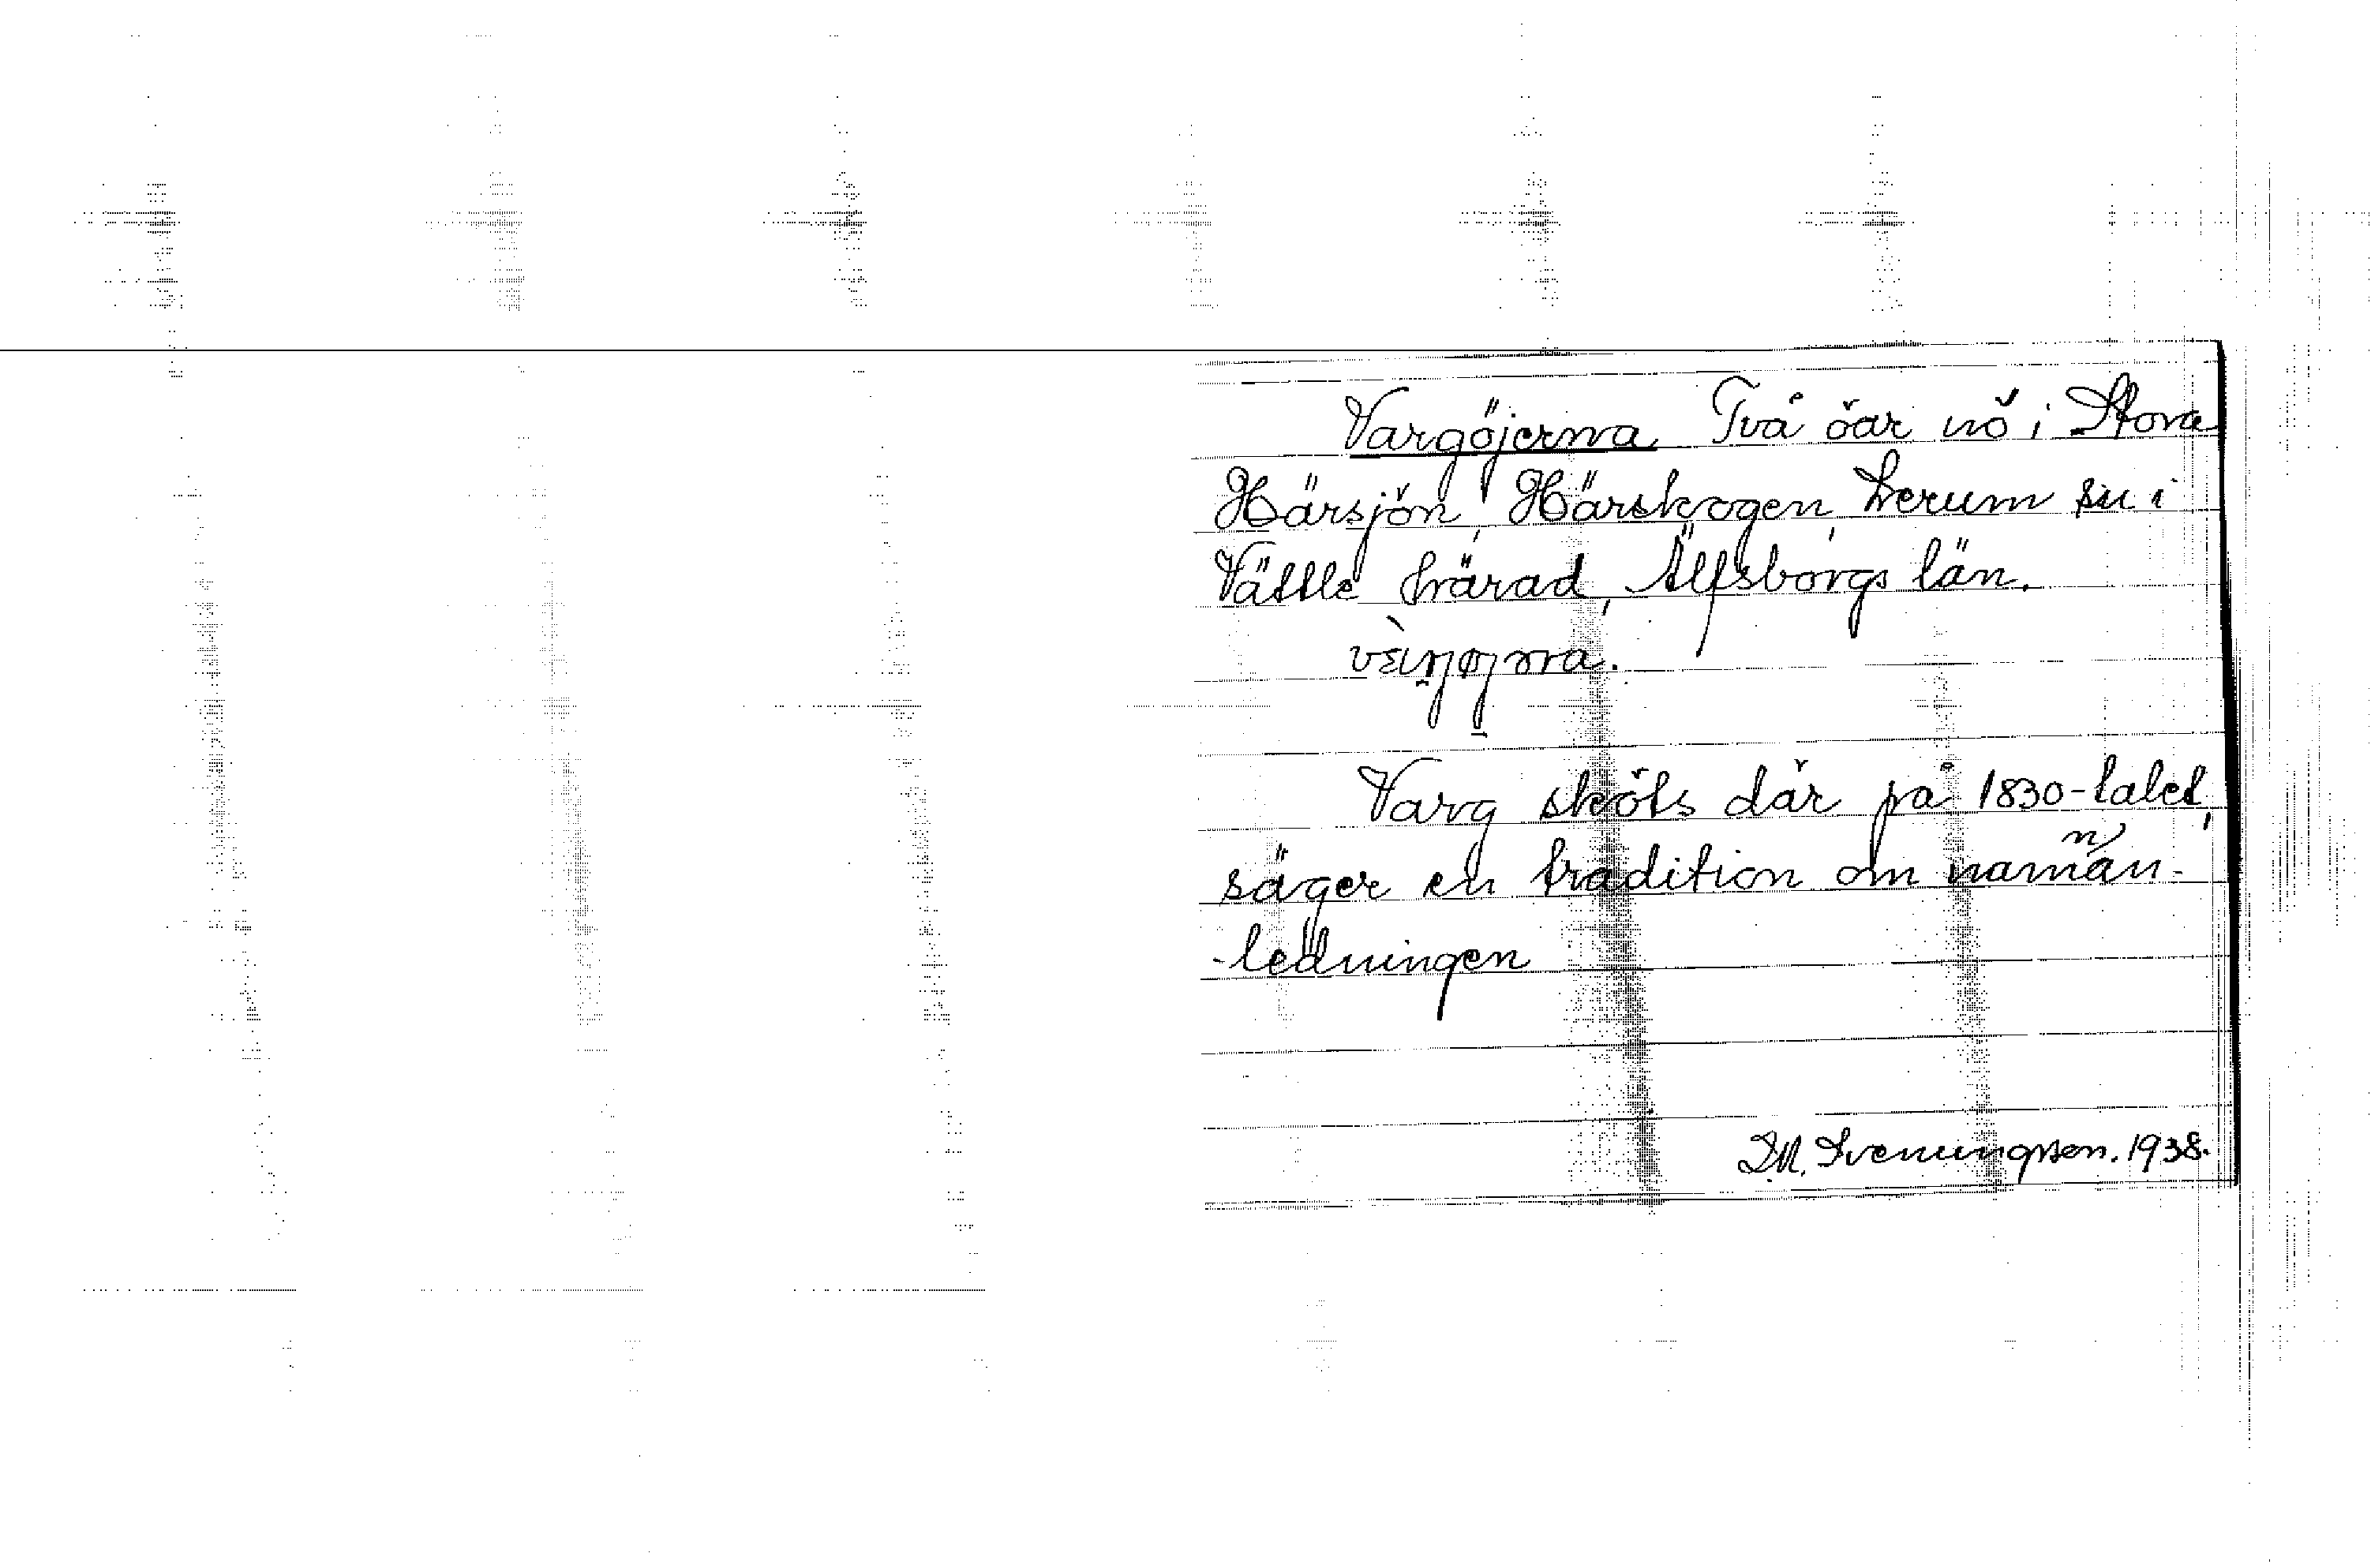 Vargöjerna, Två öar nö i Stora
Härsjön, Härskogen, Lerum sn i
Vättle härad, Älfsborgs län.
Varg sköts där på 1830-talet,
säger en tradition om namnan-
-ledningen
D.M. Svenungsson. 1938.